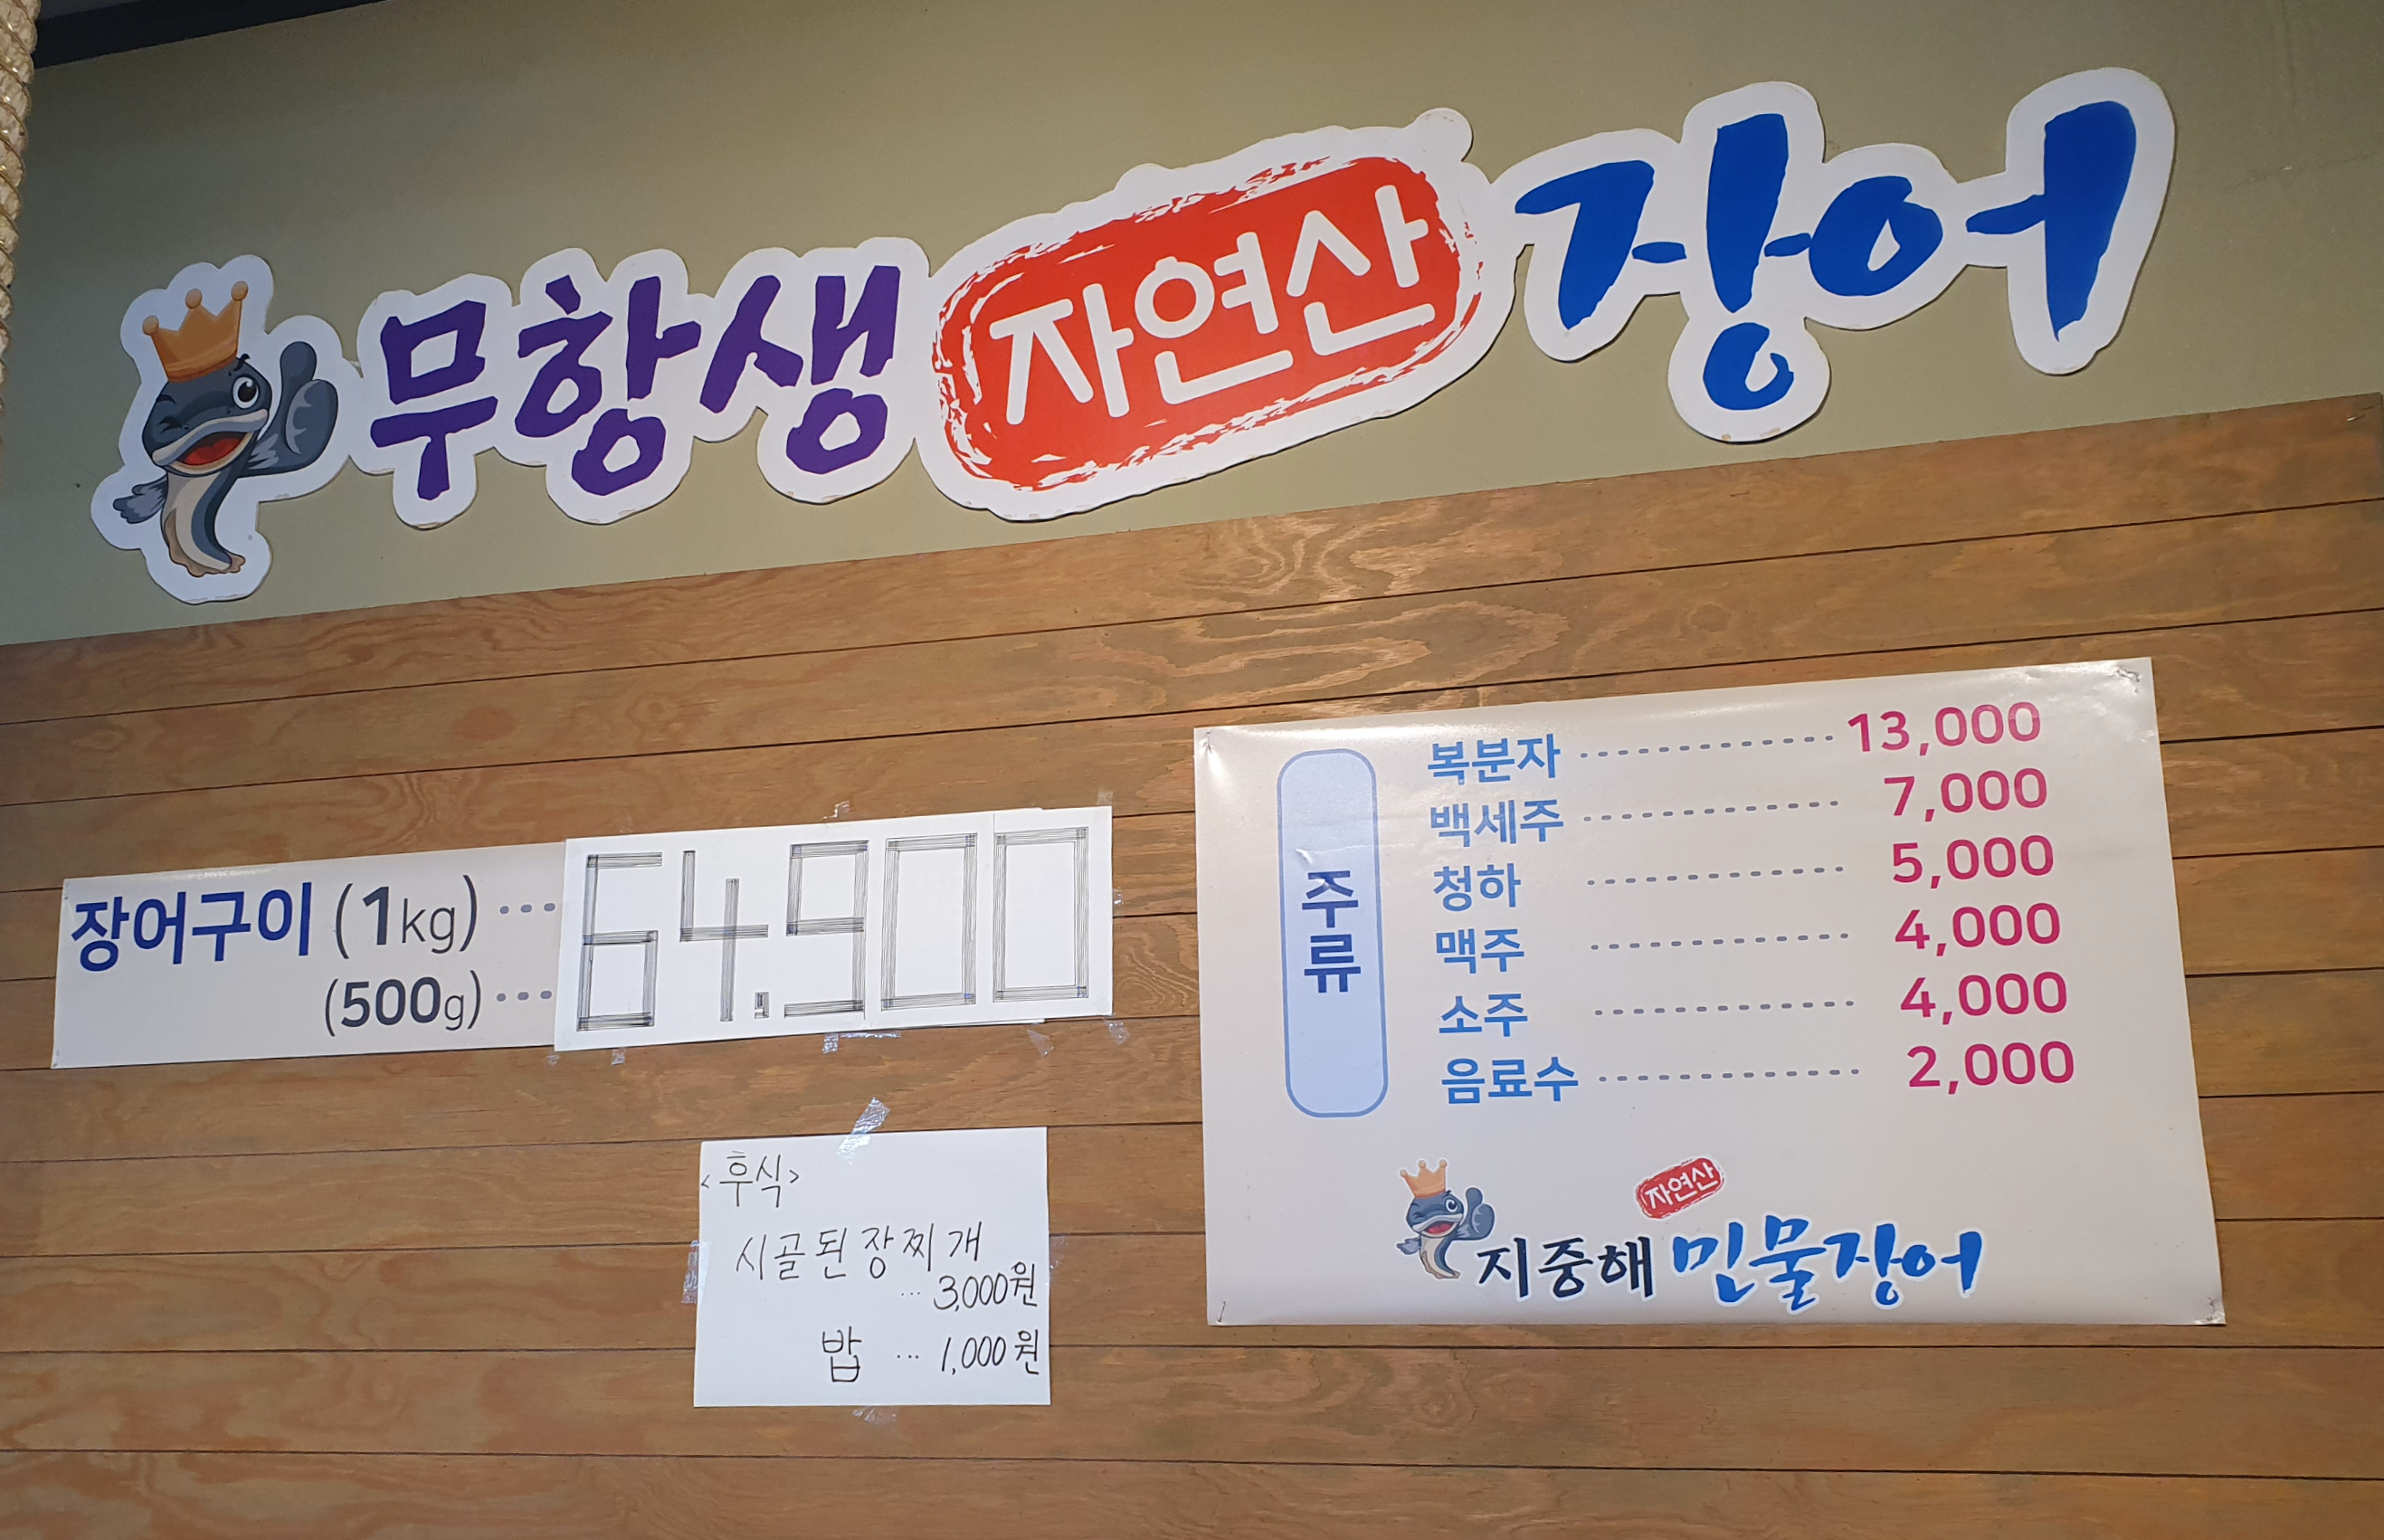 무항생 자연산 장어
장어구이 (1kg) ··· 64.900
(500g) ···
<후식>
시골된장찌개
··· 3,000원
밥 ··· 1,000원
주류
복분자 ················ 13,000
백세주 ················ 7,000
청하 ················ 5,000
맥주 ················ 4,000
소주 ················ 4,000
음료수 ················ 2,000
자연산
지중해 민물장어